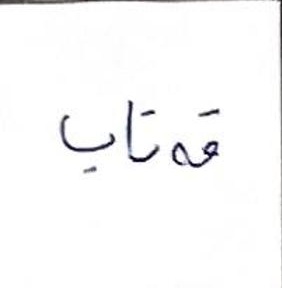 قەتاب